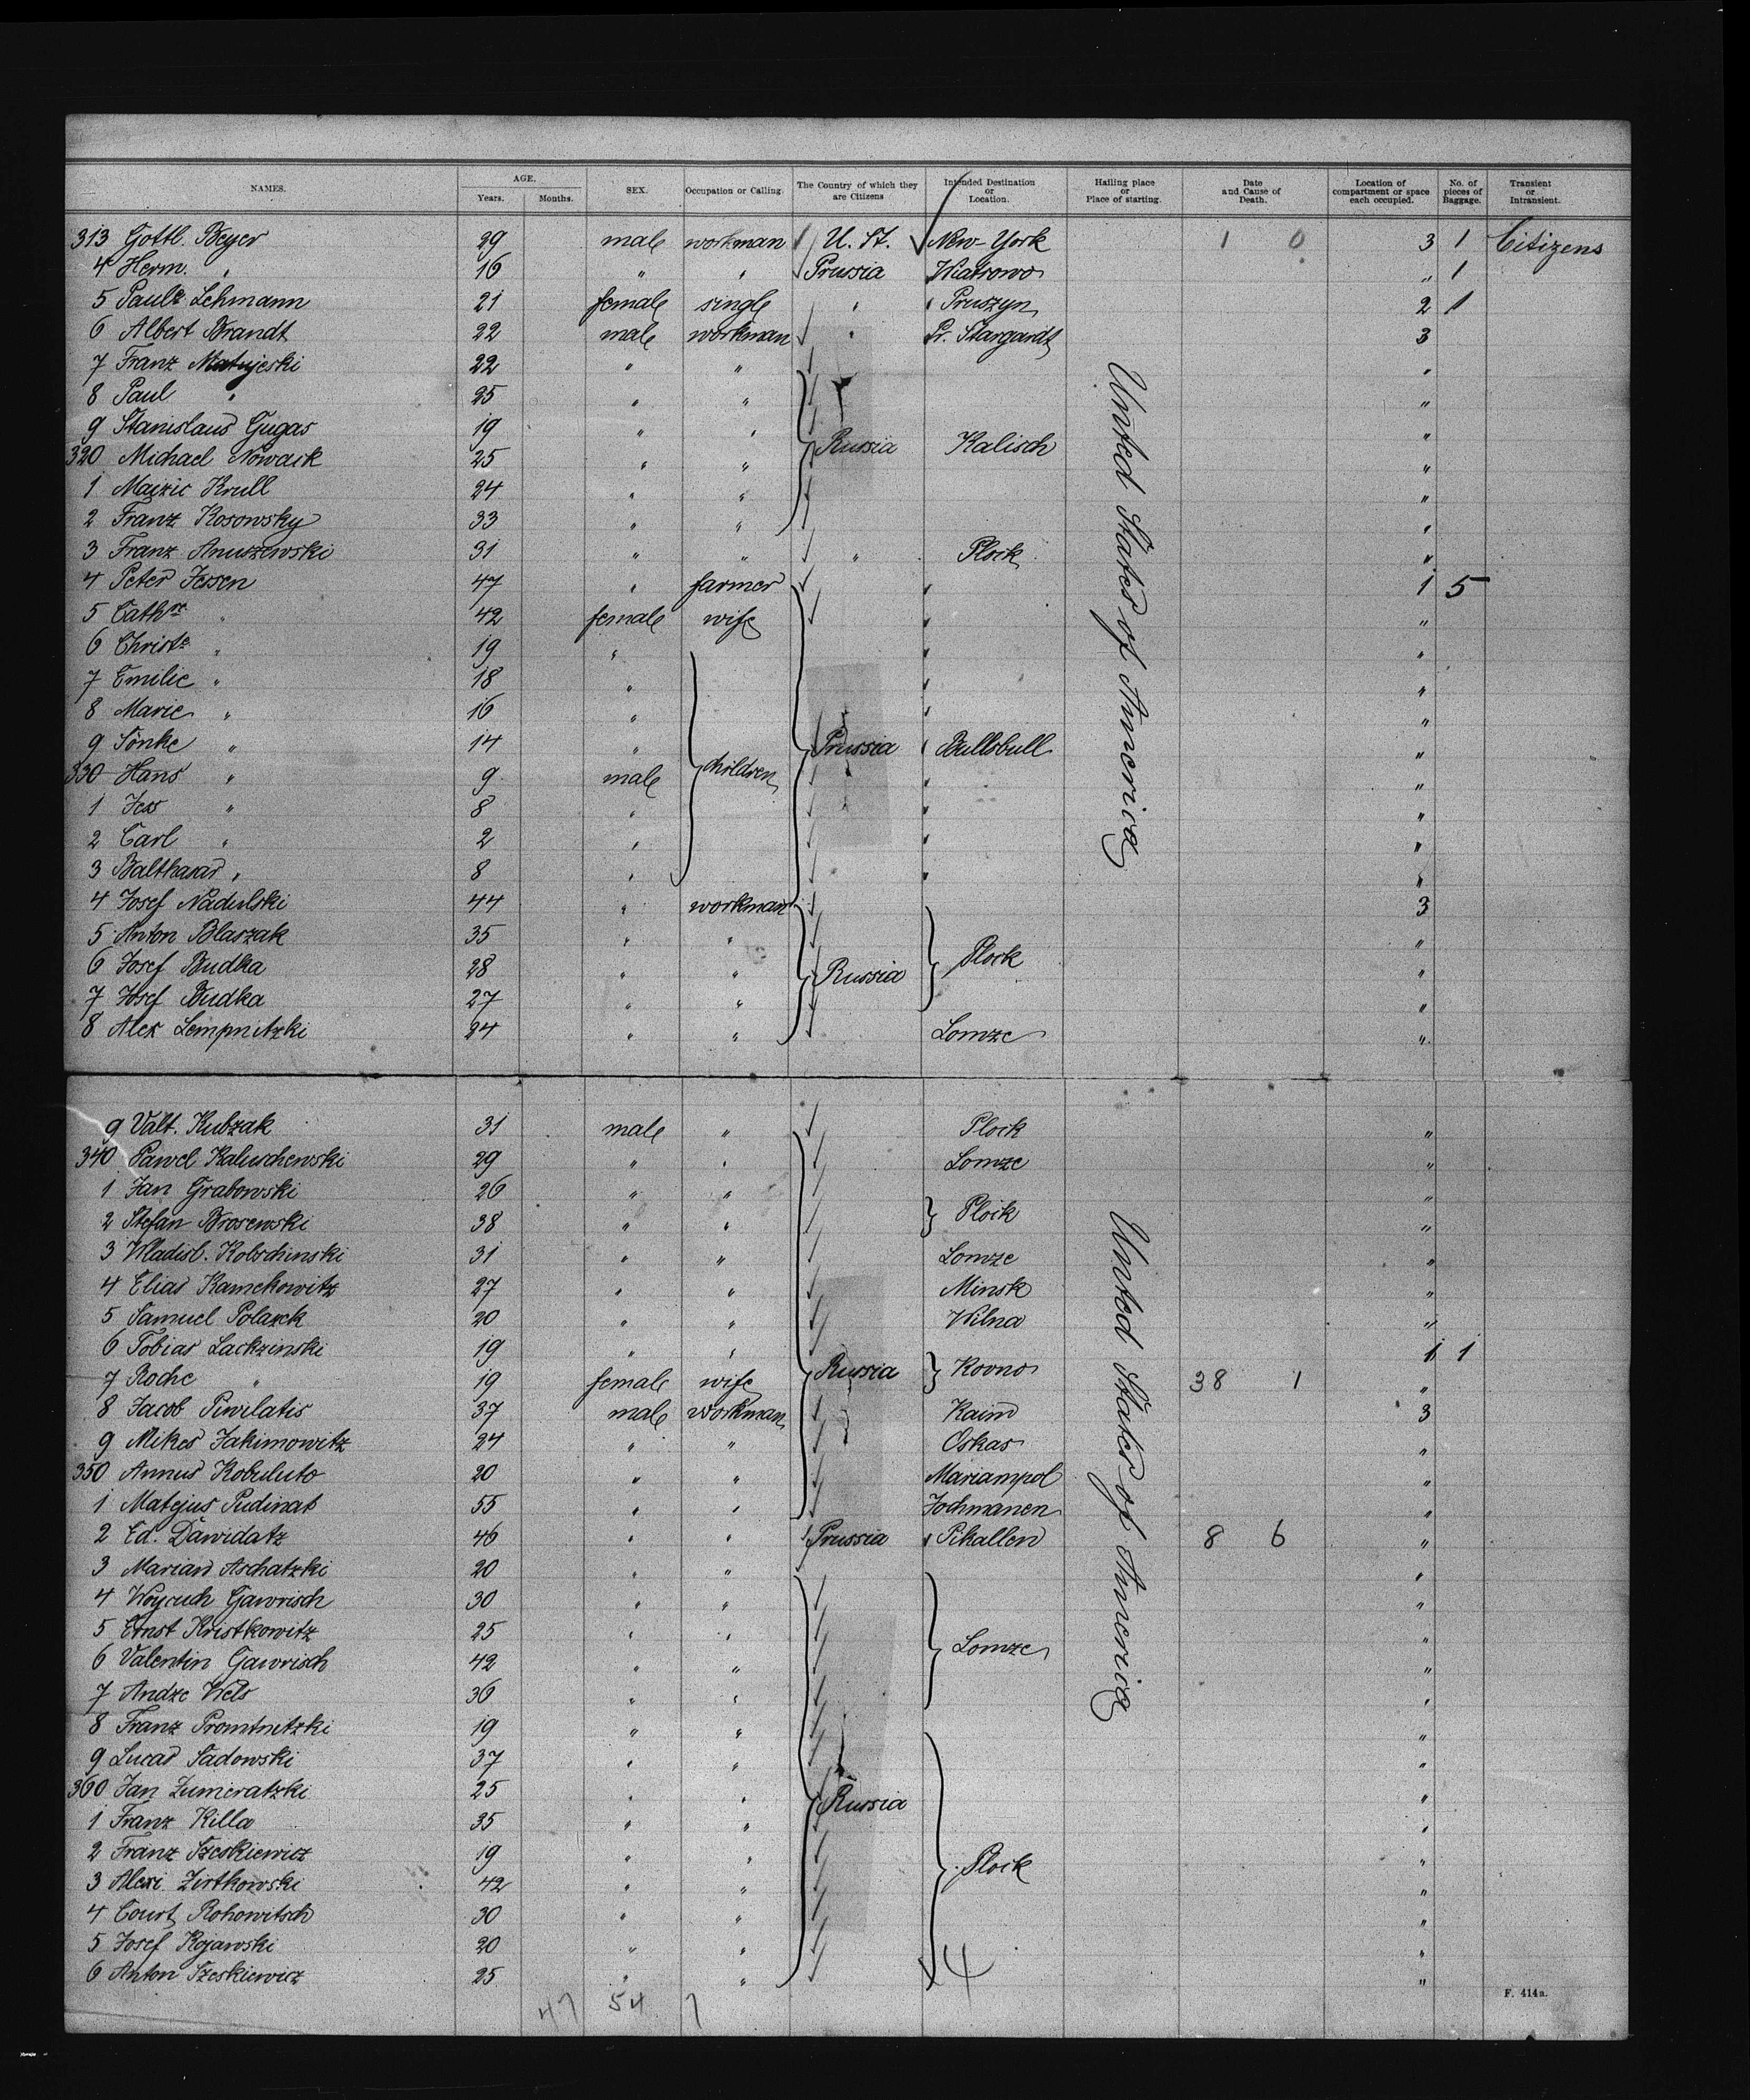 NAMES. AGE. Years. Months. SEX. Occupation or Calling. The Country of which they are Citizens Intended Destination or Location. Hailing place or Place of starting. Date and Cause of Death. Location of compartment or space each occupied. No. of pieces of Baggage. Transient or Intransient.
313 Gottl. Beyer 29 male workman U. St. New-York 1 0 3 1 Citizens
4 Herm. " 16 " " Prussia Wiatrowo " 1
5 Paule Lehmann 21 female single " Pruszyn 2 1
6 Albert Brandt 22 male workman " Pr. Stargardt 3
7 Franz Matujeski 22 " " "
8 Paul " 25 " " "
9 Stanislaus Gugas 19 " " "
320 Michael Nowack 25 " " Russia Kalisch "
1 Maizic Krull 24 " " "
2 Franz Kosowsky 33 " " "
3 Franz Anuszewski 31 " " " Plock "
4 Peter Jessen 47 " farmer 1 5
5 Cath " 42 female wife "
6 Christe " 19 " "
7 Emilie " 18 " "
8 Marie " 16 " "
9 Sönke " 14 " Prussia Bullsbull "
330 Hans " 9 male children "
1 Jess " 8 " "
2 Carl " 2 " "
3 Balthasar " 8 " "
4 Josef Nadulski 44 " workman 3
5 Anton Blaszak 35 " " "
6 Josef Budka 28 " " Russia Plock "
7 Josef Budka 27 " " "
8 Alex Lempnitzki 24 " " Lomze "
United States of America
9 Valt. Kubzak 31 male " Plock "
340 Pawel Kaluschewski 29 " " Lomze "
1 Jan Grabowski 26 " " "
2 Stefan Brosewski 38 " " Plock "
3 Wladisl. Kobschinski 31 " " Lomze "
4 Elias Kamekowitz 27 " " Minsk "
5 Samuel Polazek 20 " " Wilna "
6 Tobias Lackzinski 19 " " 1 1
7 Roche " 19 female wife Russia Kovno 38 1 "
8 Jacob Piwilatis 37 male workman Kaim 3
9 Mikes Jakimowitz 24 " " Oskas "
350 Annus Kobuluto 20 " " Mariampol "
1 Matejus Pudinat 55 " " Jochmanen "
2 Ed. Dawidatz 46 " " Prussia Pikallen 8 6 "
3 Marian Aschatzki 20 " " "
4 Woycuch Gawrisch 30 " " "
5 Ernst Kristkowitz 25 " " "
6 Valentin Gawrisch 42 " " Lomze "
7 Andze Wels 36 " " "
8 Franz Promtnitzki 19 " " "
9 Lucas Sadowski 37 " " "
360 Jan Zumeratzki 25 " " Russia "
1 Franz Killa 35 " " "
2 Franz Szeskiewicz 19 " " "
3 Alexi Zirtkowski 42 " " Plock "
4 Court Rohowitsch 30 " " "
5 Josef Kojawski 20 " " "
6 Anton Szeskiewicz 25 " " "
United States of America
47 54 7 4
F. 414a.